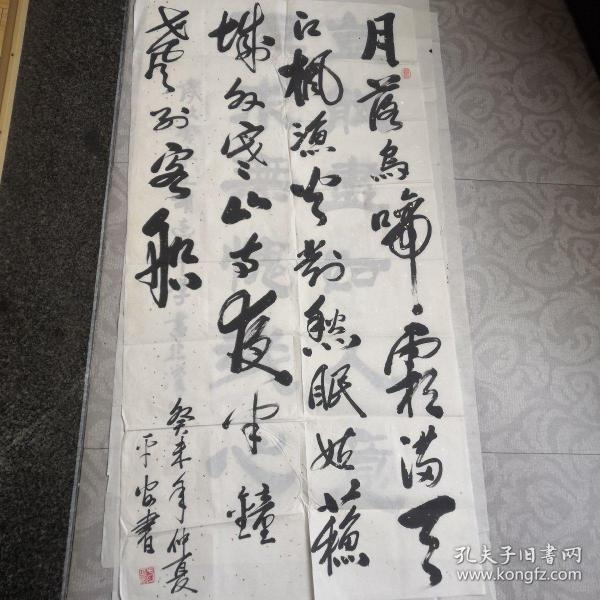 月落烏啼霜满天
江枫渔火對愁眠姑蘇
城外寒山寺夜半鐘
聲到客船
癸未年仲夏
平安書
孔夫子旧書网
www.kongfz.com